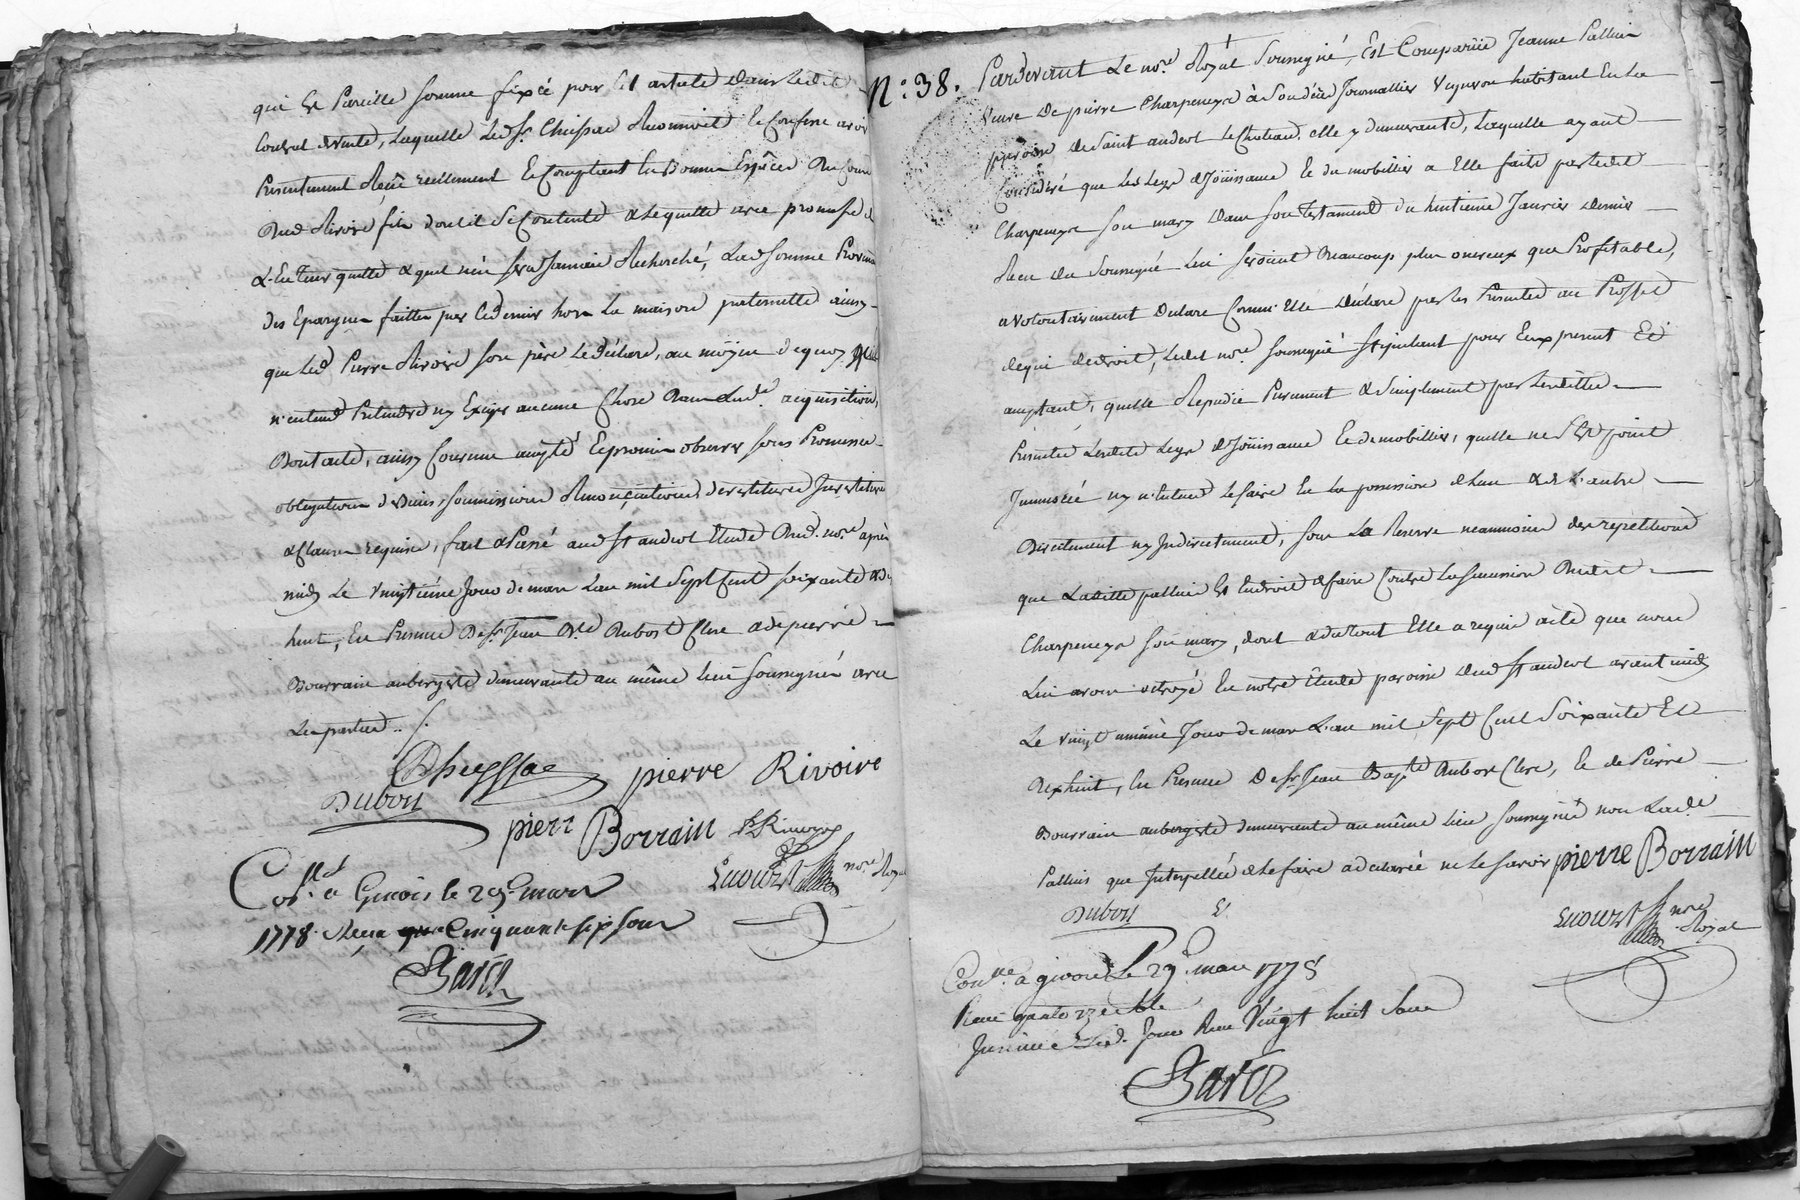 qui est pareille somme fixée pour cet article dans ledit
contrat de vente, laquelle led sr. Cheissac reconnoit et confesse avoir
presentement reçue reellement et comptant en bonnes espèces
dud Rivoire fils dont il se contente & le quitte avec promesse
& l'en tenir quitte & qu'il n'en sera jamais recherché, lad somme
des epargnes faittes par led dernier hors la maison paternelle ainsy
que led Pierre Rivoire son père le déclare, au moÿen de quoy
n'entend pretendre ny exiger aucune chose dans lad. acquisition,
Dont acte, ainsy convenu accepté et promis observer sous
obligations de biens, soumissions renonçiations
& clauses requises, fait & passé aud St andeol Etude dud. nore. après
midy le vingtième jour de mars l'an mil sept cent soixante & dix
huit, en presence de sr Jean Bte. Dubost Clerc & de pierre
Bourrain aubergiste demeurants au même lieu soussignés avec
les parties ./.
Cheyssac pierre Rivoire
Dubost
pierr Borrain
Con.lé à Givors le 29. mars
1778. Reçu cinquante six sous
nore Royal
N.° 38.
Pardevant le nore. Royal soussigné, est comparüe Jeanne Pallui
veuve de pierre Charpenays à son décès journallier vigneron habitant en la
paroisse de Saint andeol le Chateau. elle y demeurante, laquelle ayant
consideré que les legs de joüissance et de mobillier a elle faits par ledit
Charpenays son mary dans son testament du huitieme Janvier dernier
Recu du soussigné lui seroient beaucoup plus onereux que profitable,
a volontairement declaré comme elle déclare par les presentes au proffit
de qui de droit, ledit nore. soussigné stipulant pour eux present et
acceptant, quelle Repudie purement & simplement par lesdittes
presentes lesdits legs de joüissance et de mobillier, quelle ne s'est point
immiscée ny n'entend le faire en la possession de l'un & de l'autre
directement ny indirectement, sous la Reserve neanmoins des repetitions
que laditte pallui est en droit de faire contre la succession dudit
Charpenays son mary, dont & du tout elle a requis acte que nous
lui avons octroyé en notre étude paroisse dud St andeol avant midy
le vingt unième jour de mars l'an mil sept cent soixante et
dix huit, en presence de sr Jean Bapte Dubost Clerc, et de Pierre
Bourrain aubergiste demeurants au même lieu soussignés non lade
Pallui que interpellée de le faire a declarée ne le savoir pierre Borrain
Dubost
nore Royal
Con.llé a givors le 29. mars 1778
Reçu quatorze
Insinué led. jour Reçu vingt huit sous